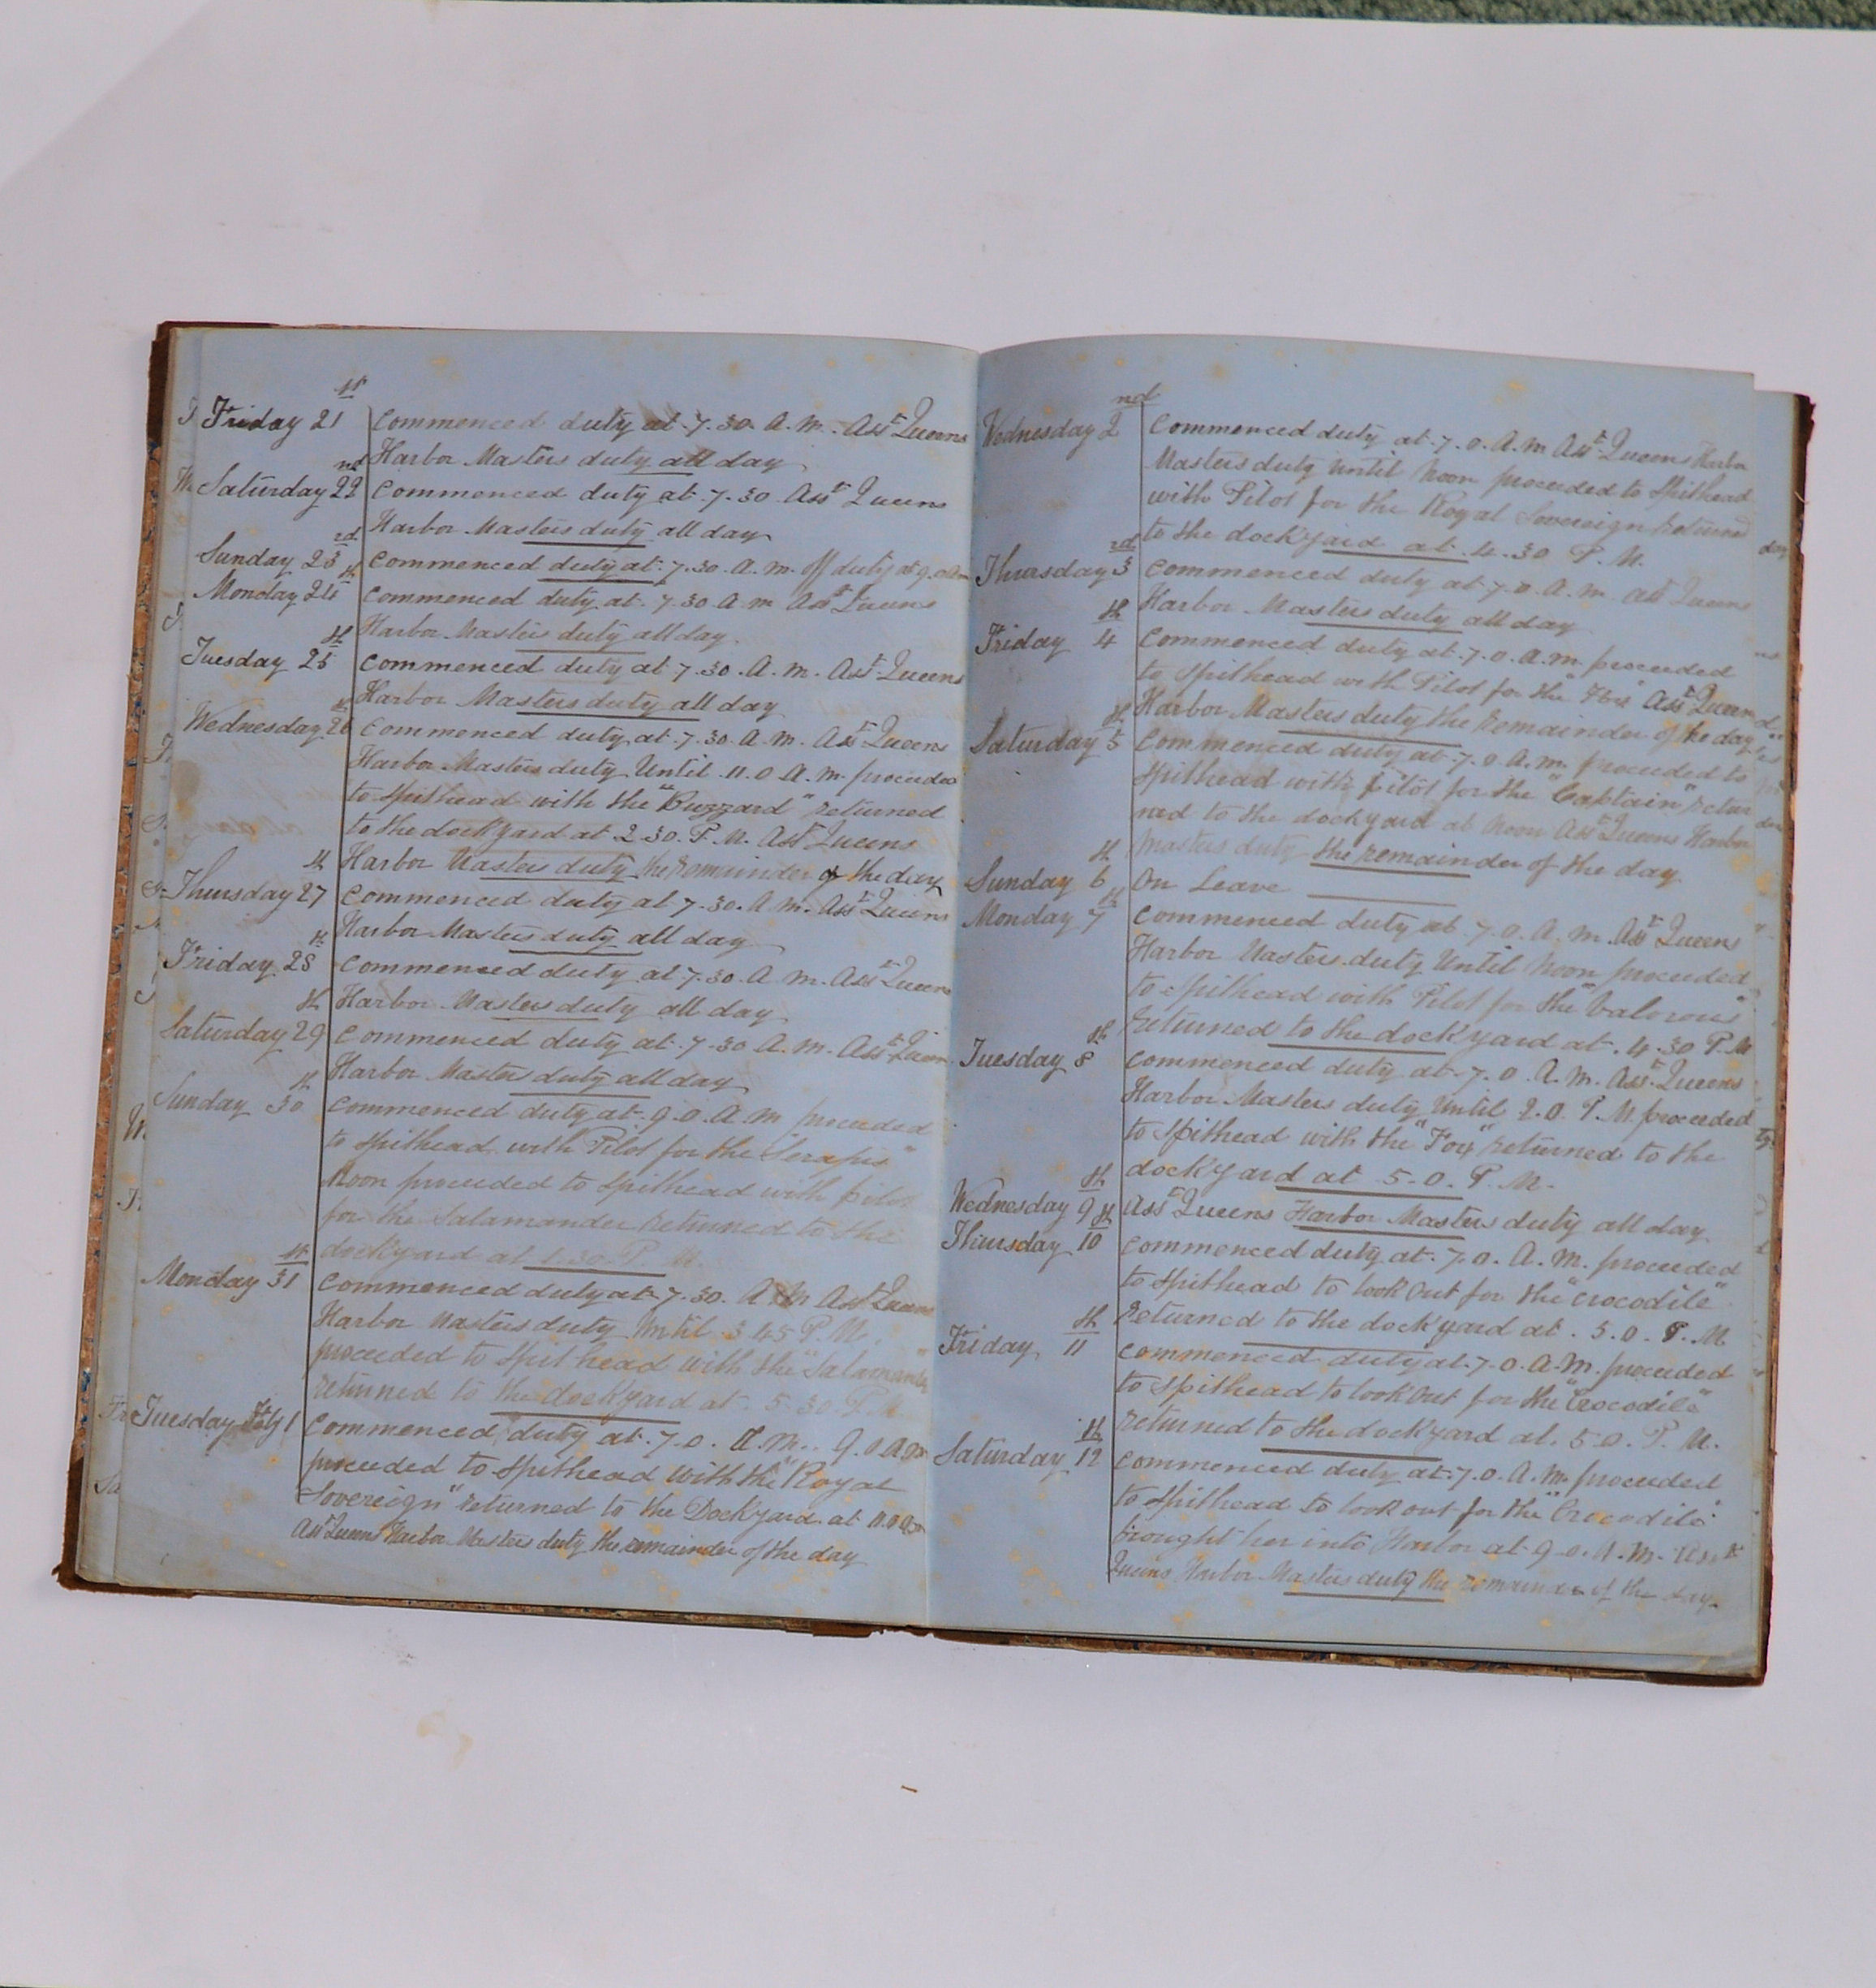 Friday 21st Commenced duty at 7.30 A.M. Asst Queens
Harbor Masters duty all day
Saturday 22nd Commenced duty at 7.30 Asst Queens
Harbor Masters duty all day
Sunday 23rd Commenced duty at 7.30. A.M. off duty at 9.0 Am
Monday 24th Commenced duty at 7.30 A M Asst Queens
Harbor Masters duty all day.
Tuesday 25th Commenced duty at 7.30. A.M. Asst Queens
Harbor Masters duty all day
Wednesday 26th Commenced duty at 7.30. A.M. Asst Queens
Harbor Masters duty Until 11.0 A.M. proceeded
to Spithead with the "Buzzard" returned
to the dockyard at 2.30. P.M. Asst Queens
Harbor Masters duty the remainder of the day
Thursday 27th Commenced duty at 7.30. A.M. Asst Queens
Harbor Masters duty all day
Friday 28th Commenced duty at 7.30. A M. Asst Queens
Harbor Masters duty all day
Saturday 29th Commenced duty at 7.30 A.M. Asst Queens
Harbor Masters duty all day
Sunday 30th Commenced duty at 9.0. A.M proceeded
to Spithead with Pilot for the "Serapis"
Noon proceeded to Spithead with pilot
for the Salamander returned to the
dockyard at 4.30 P.M.
Monday 31st Commenced duty at 7.30. A M Asst Queens
Harbor Masters duty Until 3.45 P.M.
proceeded to Spithead with the "Salamander"
returned to the dockyard at 5.30. P.M.
Tuesday Feby 1 Commenced duty at 7.0. A.M. 9.0 A.M
proceeded to Spithead with the "Royal
Sovereign" returned to the Dockyard at 11.0 Am
Asst Queens Harbor Masters duty the remainder of the day
Wednesday 2nd Commenced duty at 7.0. A.M Asst Queens Harbor
Masters duty Until Noon proceeded to Spithead
with Pilot for the Royal Sovereign returned
to the dockyard at 4.30 P.M.
Thursday 3rd Commenced duty at 7.0. A.M. Asst Queens
Harbor Masters duty all day
Friday 4th Commenced duty at 7.0. A.M. proceeded
to Spithead with Pilot for the Asst Queens
Harbor Masters duty the remainder of the day
Saturday 5th Commenced duty at 7.0 A.M. proceeded to
Spithead with pilot for the "Captain" retur
ned to the dockyard at Noon Asst Queens Harbor
Masters duty the remainder of the day.
Sunday 6th On Leave
Monday 7th Commenced duty at 7.0. A.M. Asst Queens
Harbor Masters duty Until Noon proceeded
to Spithead with Pilot for the "Valorous"
returned to the dockyard at 4.30 P.M
Tuesday 8th Commenced duty at 7.0. A.M. Asst Queens
Harbor Masters duty Until 2.0. P.M. proceeded
to Spithead with the "Fox" returned to the
dockyard at 5.0. P.M.
Wednesday 9th Asst Queens Harbor Masters duty all day.
Thursday 10th Commenced duty at 7.0. A.M. proceeded
to Spithead to look out for the "Crocodile"
returned to the dockyard at 5.0. P.M.
Friday 11th Commenced duty at 7.0. A.M. proceeded
to Spithead to look out for the "Crocodile"
returned to the dockyard at 5.0. P.M.
Saturday 12th Commenced duty at 7.0. A.M. proceeded
to Spithead to look out for the "Crocodile"
brought her into Harbor at 9.0. A.M. Asst
Queens Harbor Masters duty the remainder of the day.